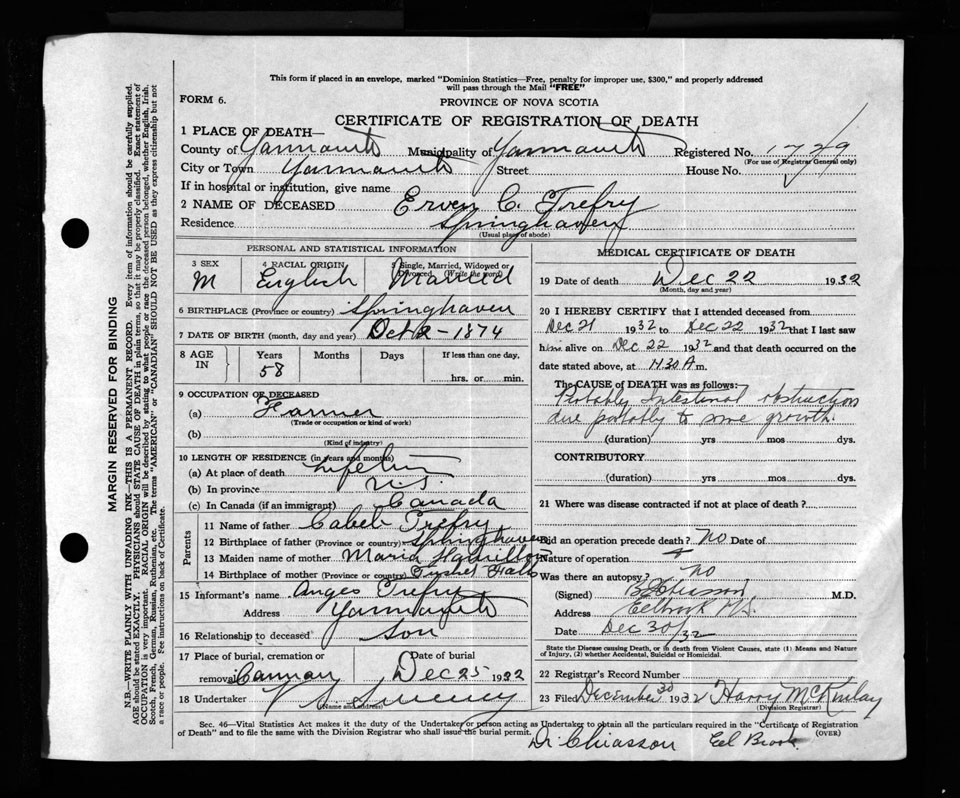 This form if placed in an envelope, marked "Dominion Statistics—Free, penalty for improper use, $300," and properly addressed
will pass through the Mail "FREE"
FORM 6.
PROVINCE OF NOVA SCOTIA
CERTIFICATE OF REGISTRATION OF DEATH
1 PLACE OF DEATH—
County of Yarmouth Municipality of Yarmouth Registered No. 1729
(For use of Registrar General only)
City or Town Yarmouth Street House No.
If in hospital or institution, give name
2 NAME OF DECEASED Erven C. Trefry
Residence Springhaven
(Usual place of abode)
PERSONAL AND STATISTICAL INFORMATION
3 SEX 4 RACIAL ORIGIN 5 Single, Married, Widowed or Divorced (Write the word)
M English Married
6 BIRTHPLACE (Province or country) Springhaven
7 DATE OF BIRTH (month, day and year) Oct 2 - 1874
8 AGE IN Years Months Days If less than one day,
58 hrs. or min.
9 OCCUPATION OF DECEASED
(a) Farmer
(Trade or occupation or kind of work)
(b)
(Kind of industry)
10 LENGTH OF RESIDENCE (in years and months)
(a) At place of death Lifetime
(b) In province N.S.
(c) In Canada (if an immigrant) Canada
Parents
11 Name of father Caleb Trefry
12 Birthplace of father (Province or country) Springhaven
13 Maiden name of mother Maria Hamilton
14 Birthplace of mother (Province or country) Tusket Falls
15 Informant's name Anges Trefry
Address Yarmouth
16 Relationship to deceased Son
17 Place of burial, cremation or removal Date of burial
Dec 25 1932
18 Undertaker V S Sweeney
(Name and address)
MEDICAL CERTIFICATE OF DEATH
19 Date of death Dec 22 1932
(Month, day and year)
20 I HEREBY CERTIFY that I attended deceased from
Dec 21 1932 to Dec 22 1932 that I last saw
him alive on Dec 22 1932 and that death occurred on the
date stated above, at 4.30 A m.
The CAUSE OF DEATH was as follows:
Probably Intestinal obstruction
due probably to some growth.
(duration) yrs mos dys.
CONTRIBUTORY
(duration) yrs. mos. dys.
21 Where was disease contracted if not at place of death?
Did an operation precede death? No Date of
Nature of operation
Was there an autopsy? no
(Signed) M.D.
Address Eelbrook N.S.
Date Dec 30/32
State the Disease causing Death, or in death from Violent Causes, state (1) Means and Nature
of Injury, (2) whether Accidental, Suicidal or Homicidal.
22 Record Number
23 Filed December 30 1932 Harry McKinlay
(Division Registrar)
Sec. 46—Vital Statistics Act makes it the duty of the Undertaker or person acting as Undertaker to obtain all the particulars required in the "Certificate of Registration
of Death" and to file the same with the Division Registrar who shall issue the burial permit. (OVER)
Dr Chiasson Eel Brook
MARGIN RESERVED FOR BINDING
N.B.—WRITE PLAINLY WITH UNFADING INK—THIS IS A PERMANENT RECORD. Every item of information should be carefully supplied.
AGE should be stated EXACTLY. PHYSICIANS should STATE CAUSE OF DEATH in plain terms, so that it may be properly classified. Exact statement of
OCCUPATION is very important. RACIAL ORIGIN will be described by stating to what people or race the deceased person belonged, whether English, Irish,
Scotch, French, German, Russian, Ruthenian, etc. The terms "AMERICAN" or "CANADIAN" SHOULD NOT BE USED as they express citizenship but not
a race or people. See instructions on back of Certificate.